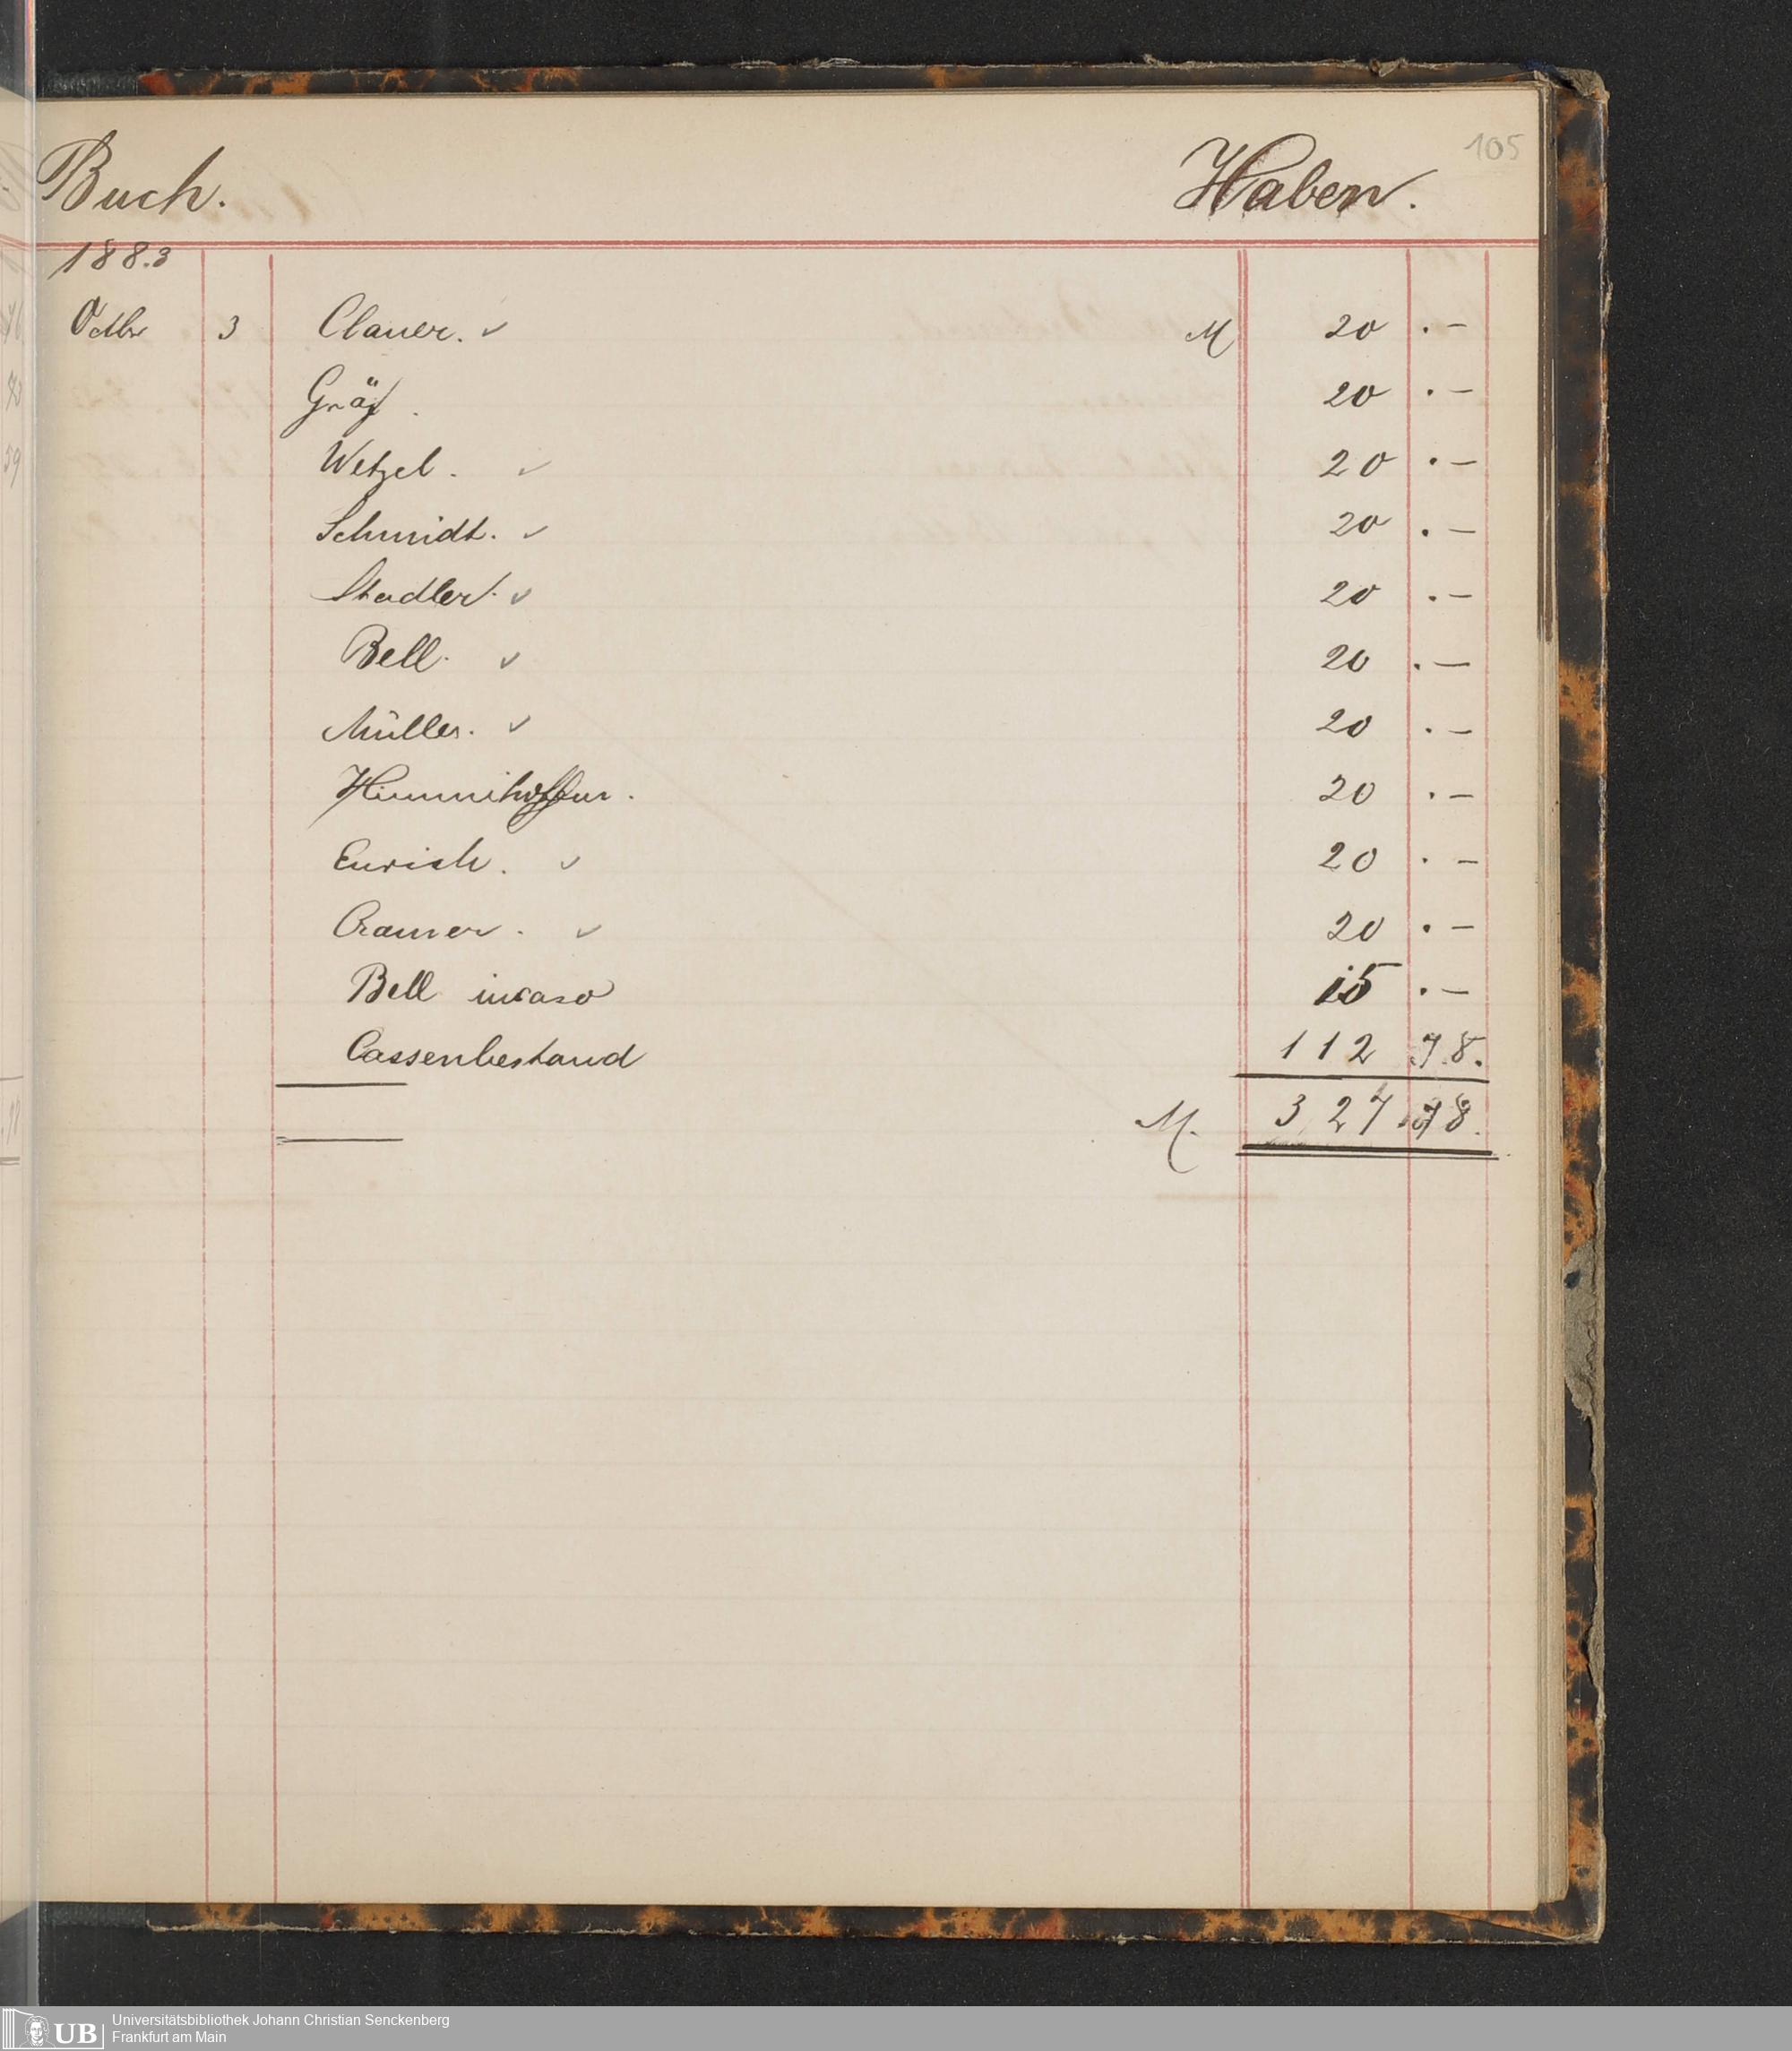 105
Buch. Haben.
1883
Octbr 3 Clauer. ✓ M 20 . —
Gräf . 20 . —
Wetzel . ✓ 20 . —
Schmidt. ✓ 20 . —
Stadler. ✓ 20 . —
Bell. ✓ 20 . —
Müller. ✓ 20 . —
20 . —
Eurich . ✓ 20 . —
Cramer . ✓ 20 . —
Bell incaso 15 . —
Cassenbestand 112 78.
M. 327.78.
UB Universitätsbibliothek Johann Christian Senckenberg
Frankfurt am Main